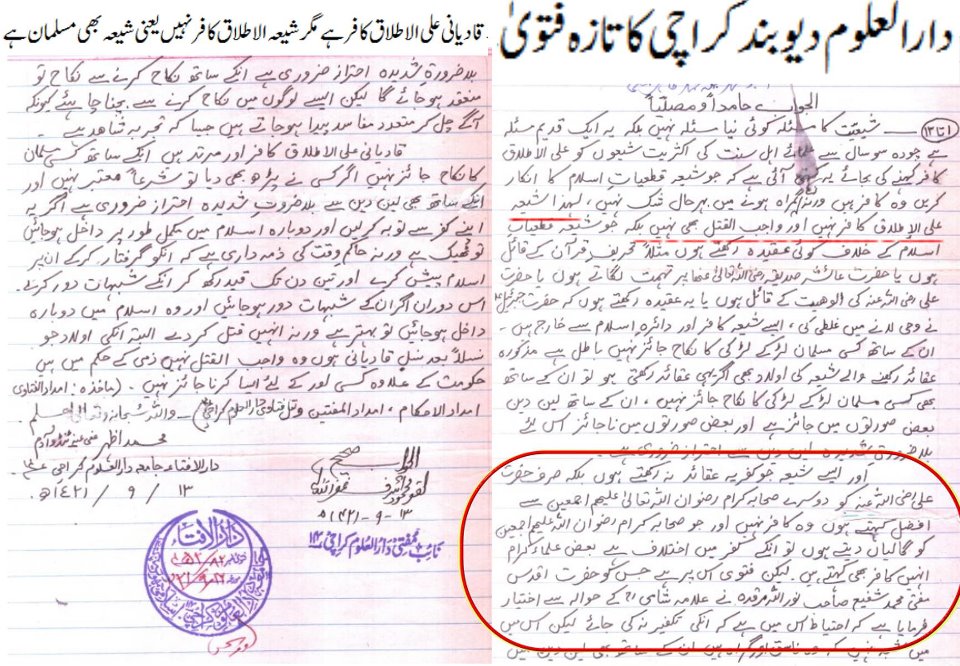 دارالعلوم دیوبند کراچی کا تازہ فتویٰ
الجواب حامداً ومصلّیاً
۱ تا ۱۳ — شیعیت کا مسئلہ کوئی نیا مسئلہ نہیں بلکہ یہ ایک قدیم مسئلہ
ہے چودہ سو سال سے علمائے اہل سنت کی اکثریت شیعوں کو علی الاطلاق
کافر کہنے کی بجائے یہ کہتی آئی ہے کہ جو شیعہ قطعیاتِ اسلام کا انکار
کریں وہ کافر ہیں ورنہ گمراہ ہونے میں بہرحال شک نہیں، لہذا شیعہ
علی الاطلاق کافر نہیں اور واجب القتل بھی نہیں بلکہ جو شیعہ قطعیات
اسلام کے خلاف کوئی عقیدہ رکھتے ہوں مثلاً تحریف قرآن کے قائل
ہوں یا حضرت عائشہ صدیقہ رضی اللہ تعالیٰ عنہا پر تہمت لگاتے ہوں یا حضرت
علی رضی اللہ عنہ کی الوہیت کے قائل ہوں یا یہ عقیدہ رکھتے ہوں کہ حضرت جبرئیل
نے وحی لانے میں غلطی کی، ایسے شیعہ کافر اور دائرہ اسلام سے خارج ہیں۔
ان کے ساتھ کسی مسلمان لڑکے لڑکی کا نکاح جائز نہیں باطل ہے مذکورہ
عقائد رکھنے والے شیعہ کی اولاد بھی اگر یہی عقائد رکھتی ہو تو ان کے ساتھ
بھی کسی مسلمان لڑکے لڑکی کا نکاح جائز نہیں، ان کے ساتھ لین دین
بعض صورتوں میں جائز ہے اور بعض صورتوں میں ناجائز اس لئے
بلاضرورتِ شدیدہ اس لین دین سے احتراز ضروری ہے۔
اور ایسے شیعہ جو کفریہ عقائد نہ رکھتے ہوں بلکہ صرف حضرت
علی رضی اللہ عنہ کو دوسرے صحابہ کرام رضوان اللہ تعالیٰ علیہم اجمعین سے
افضل کہتے ہوں وہ کافر نہیں اور جو صحابہ کرام رضوان اللہ علیہم اجمعین
کو گالیاں دیتے ہوں تو انکے کفر میں اختلاف ہے بعض علماء کرام
انہیں کافر بھی کہتے ہیں۔ لیکن فتوی اس پر ہے جس کو حضرت اقدس
مفتی محمد شفیع صاحب نور اللہ مرقدہ نے علامہ شامی کے حوالہ سے اختیار
فرمایا ہے کہ احتیاط اس میں ہے کہ انکی تکفیر نہ کی جائے لیکن اس میں
قادیانی علی الاطلاق کافر ہے مگر شیعہ الاطلاق کافر نہیں یعنی شیعہ بھی مسلمان ہے
بلاضرورۃ شدیدہ احتراز ضروری ہے انکے ساتھ نکاح کرنے سے نکاح تو
منعقد ہو جائے گا لیکن ایسے لوگوں میں نکاح کرنے سے بچنا چاہئے کیونکہ
آگے چل کر متعدد مفاسد پیدا ہو جاتے ہیں جیسا کہ تجربہ شاہد ہے۔
قادیانی علی الاطلاق کافر اور مرتد ہیں انکے ساتھ کسی مسلمان
کا نکاح جائز نہیں اگر کسی نے پڑھ بھی دیا تو شرعاً معتبر نہیں اور
انکے ساتھ بھی لین دین سے بلاضرورتِ شدیدہ احتراز ضروری ہے اگر یہ
اپنے کفر سے توبہ کر لیں اور دوبارہ اسلام میں مکمل طور پر داخل ہو جائیں
تو ٹھیک ہے ورنہ حاکم وقت کی ذمہ داری ہے کہ انکو گرفتار کر کے ان پر
اسلام پیش کرے اور تین دن تک قید رکھ کر انکے شبہات دور کرے۔
اس دوران اگر ان کے شبہات دور ہو جائیں اور وہ اسلام میں دوبارہ
داخل ہو جائیں تو بہتر ہے ورنہ انہیں قتل کر دے البتہ انکی اولاد جو
نسلاً بعد نسلٍ قادیانی ہوں وہ واجب القتل نہیں ذمی کے حکم میں ہیں
حکومت کے علاوہ کسی اور کے لئے ایسا کرنا جائز نہیں۔ (ماخذہ: امداد الفتاوی
امداد الاحکام، امداد المفتین و نقل فتاوی دارالعلوم کراچی) واللہ سبحانہ وتعالی اعلم
محمد اظہر
دارالافتاء جامعہ دارالعلوم کراچی
۱۳ / ۹ / ۱۴۲۱ھ
الجواب صحیح
محمود اشرف غفر اللہ لہ
۱۳-۹-۱۴۲۱ھ
نائب مفتی دارالعلوم کراچی ۱۴
دارالافتاء